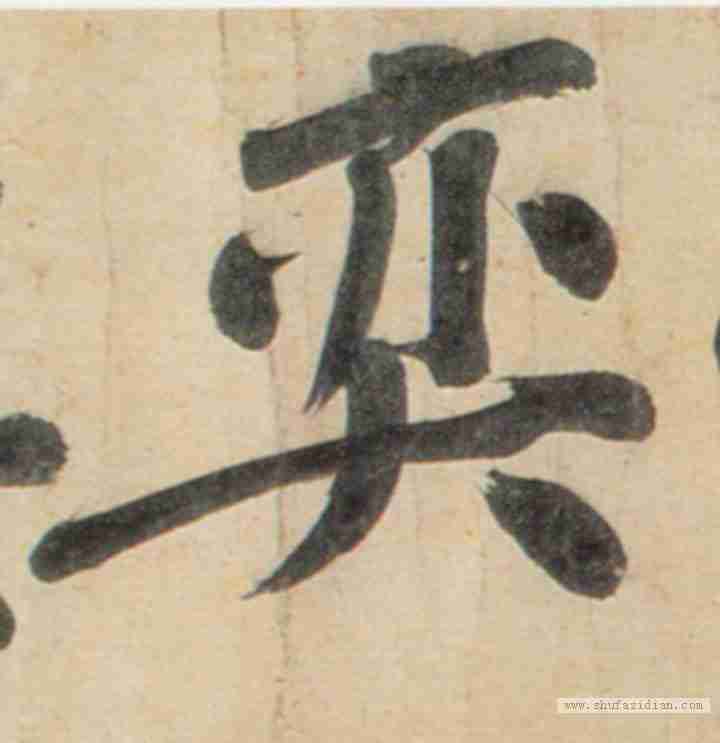 奕
www.shufazidian.com